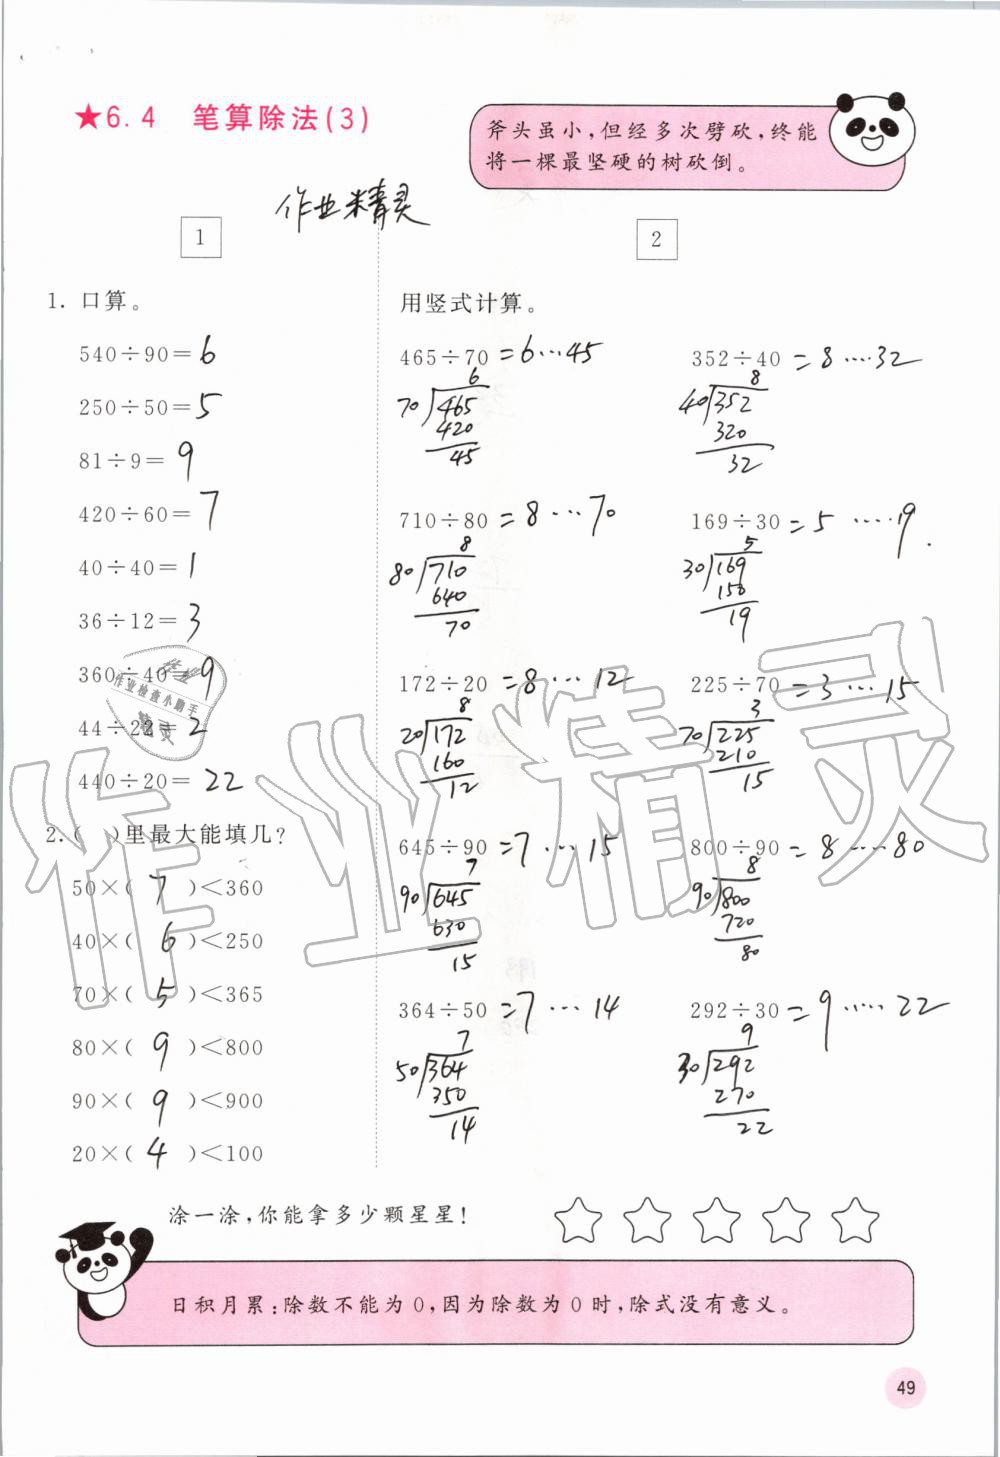 ★6.4 笔算除法(3)
斧头虽小,但经多次劈砍,终能
将一棵最坚硬的树砍倒。
作业精灵
1
1. 口算。
540÷90=6
250÷50=5
81÷9=9
420÷60=7
40÷40=1
36÷12=3
360÷40=9
44÷22=2
440÷20=22
作业检查小助手
2.( )里最大能填几?
50×( 7 )<360
40×( 6 )<250
70×( 5 )<365
80×( 9 )<800
90×( 9 )<900
20×( 4 )<100
2
用竖式计算。
465÷70=6…45
6
70 465
420
45
352÷40=8….32
8
40 352
320
32
710÷80=8…70
8
80 710
640
70
169÷30=5….19
5
30 169
150
19
172÷20=8…12
8
20 172
160
12
225÷70=3…15
3
70 225
210
15
645÷90=7…15
7
90 645
630
15
800÷90=8….80
8
90 800
720
80
364÷50=7…14
7
50 364
350
14
292÷30=9…..22
9
30 292
270
22
作业精灵
涂一涂,你能拿多少颗星星!
日积月累:除数不能为0,因为除数为0时,除式没有意义。
49